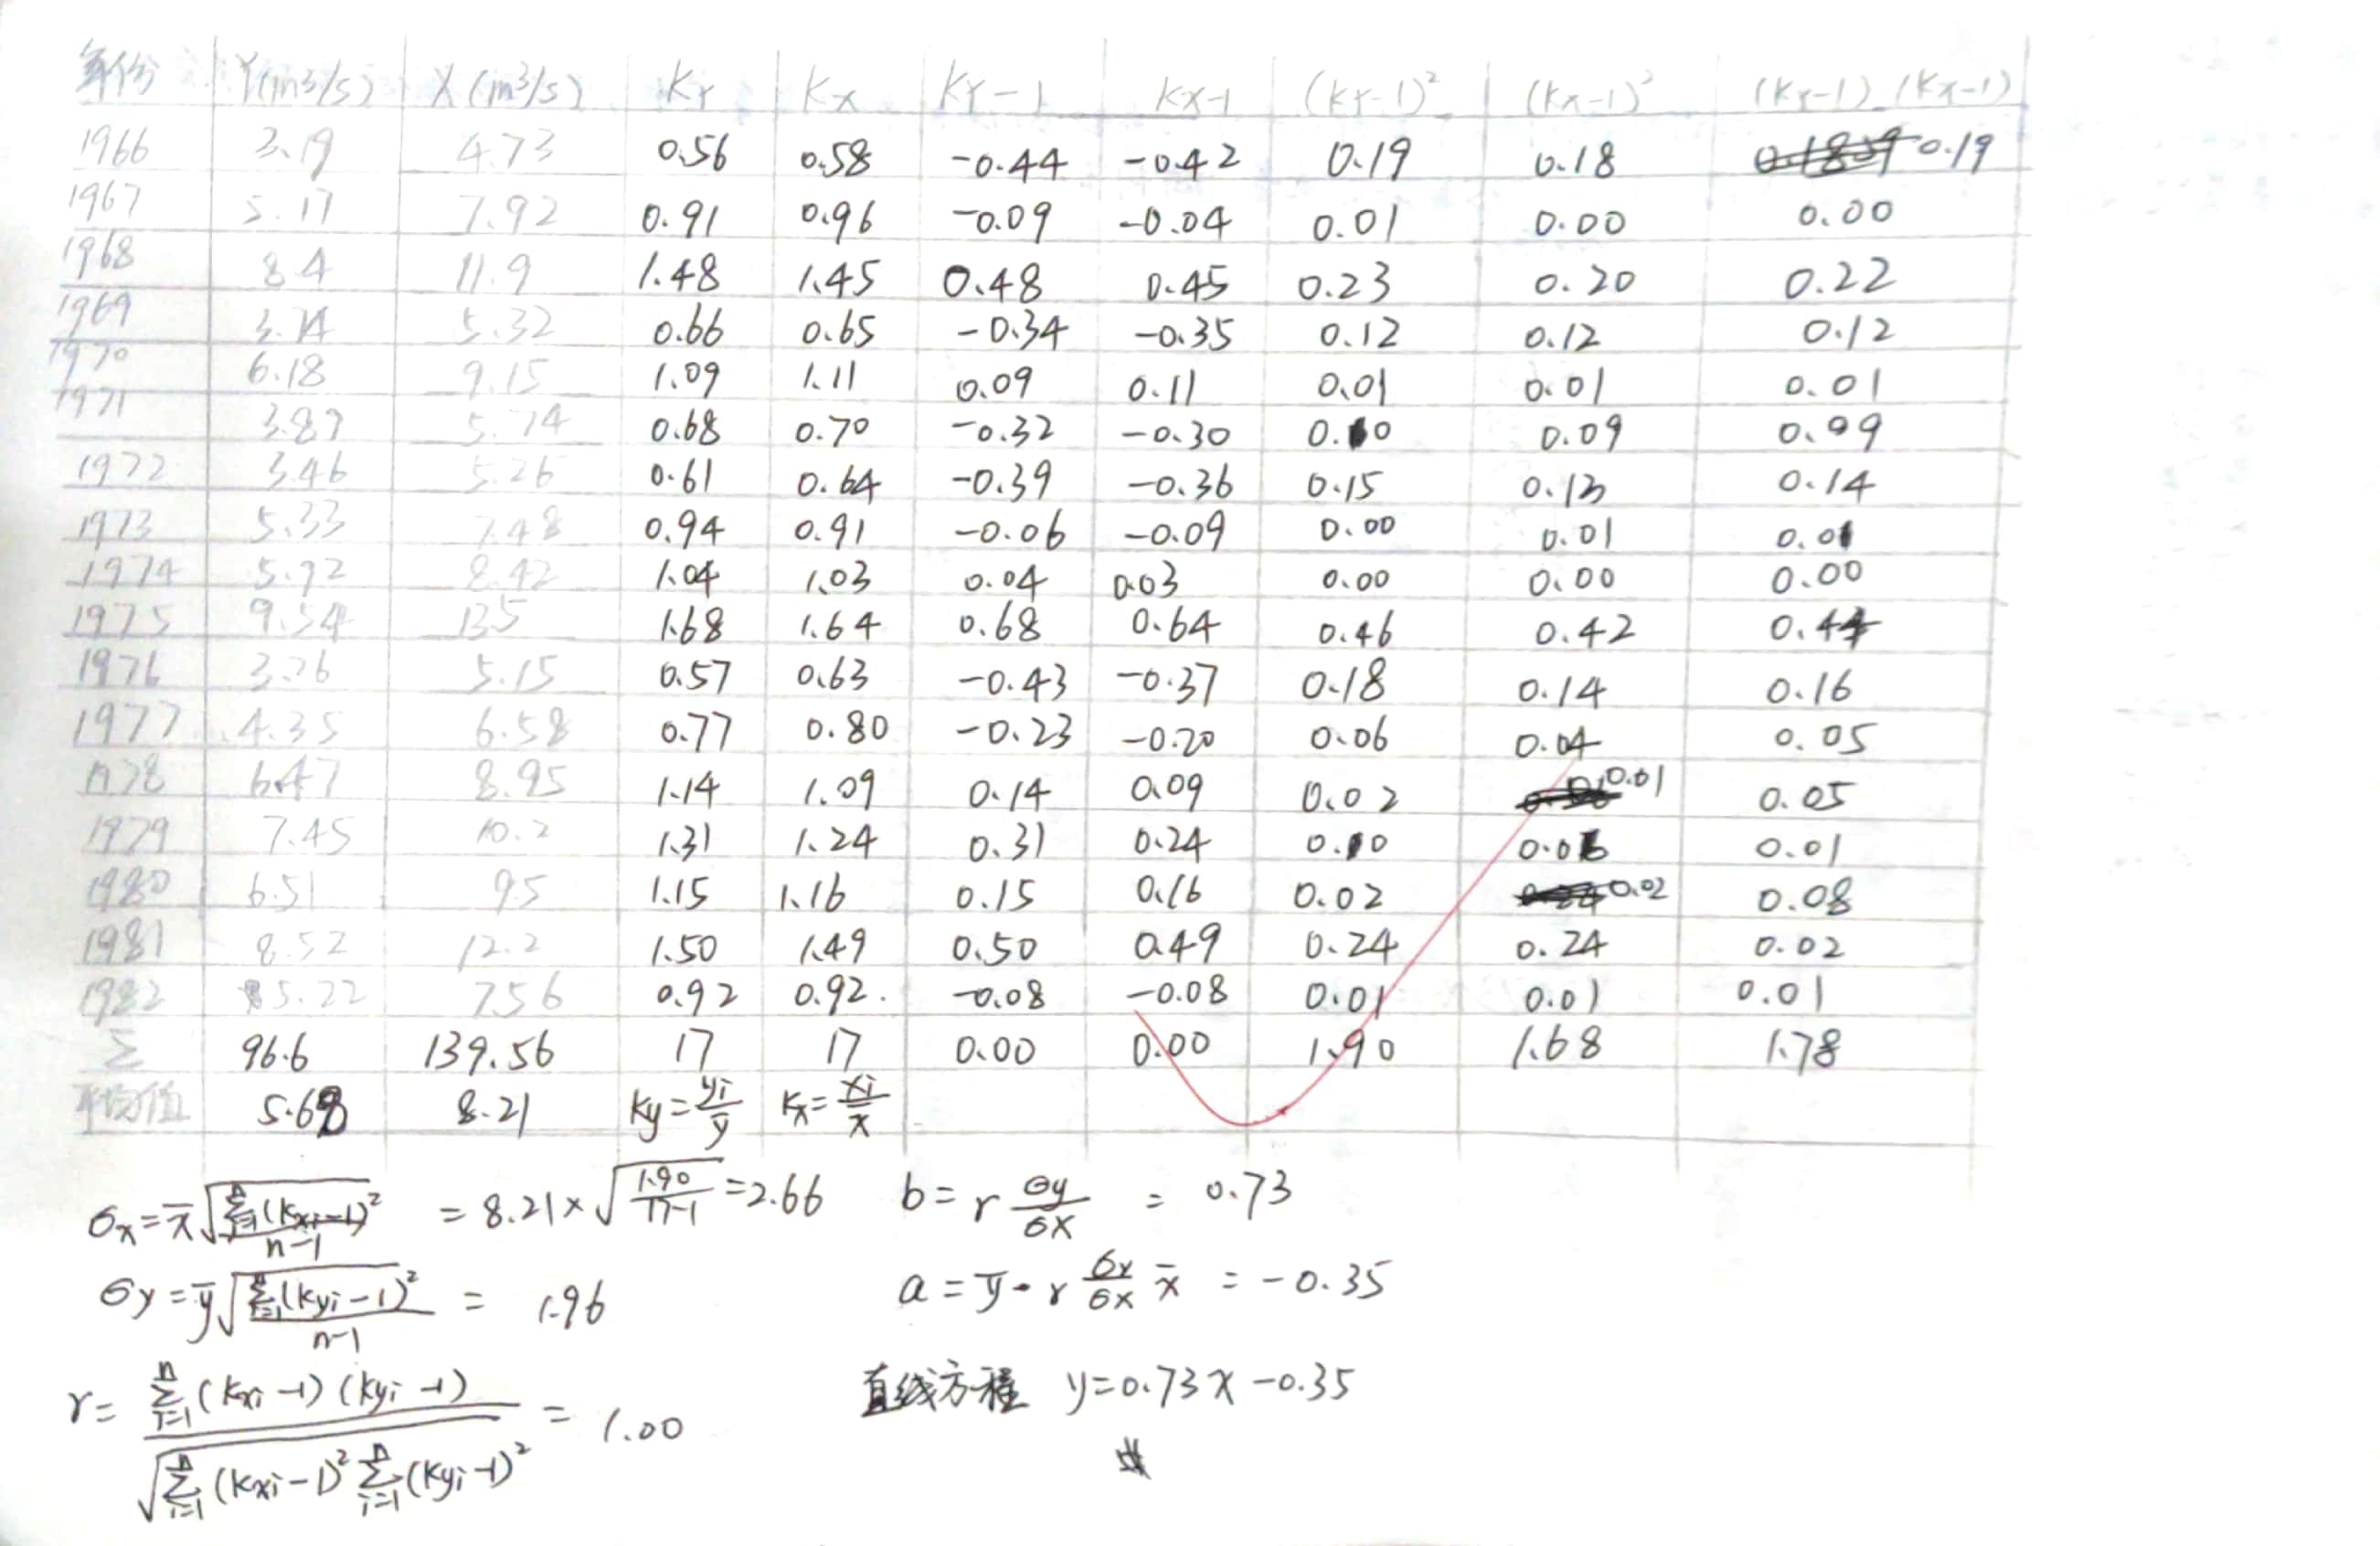 年份 Y(m3/s) X(m3/s) KY KX KY-1 KX-1 (KY-1)² (KX-1)² (KY-1)(KX-1)
1966 3.19 4.73 0.56 0.58 -0.44 -0.42 0.19 0.18 0.19
1967 5.17 7.92 0.91 0.96 -0.09 -0.04 0.01 0.00 0.00
1968 8.4 11.9 1.48 1.45 0.48 0.45 0.23 0.20 0.22
1969 3.74 5.32 0.66 0.65 -0.34 -0.35 0.12 0.12 0.12
1970 6.18 9.15 1.09 1.11 0.09 0.11 0.01 0.01 0.01
1971 3.87 5.74 0.68 0.70 -0.32 -0.30 0.10 0.09 0.09
1972 3.46 5.26 0.61 0.64 -0.39 -0.36 0.15 0.13 0.14
1973 5.33 7.48 0.94 0.91 -0.06 -0.09 0.00 0.01 0.01
1974 5.92 8.42 1.04 1.03 0.04 0.03 0.00 0.00 0.00
1975 9.54 13.5 1.68 1.64 0.68 0.64 0.46 0.42 0.44
1976 3.26 5.15 0.57 0.63 -0.43 -0.37 0.18 0.14 0.16
1977 4.35 6.58 0.77 0.80 -0.23 -0.20 0.06 0.04 0.05
1978 6.47 8.95 1.14 1.09 0.14 0.09 0.02 0.01 0.05
1979 7.45 10.2 1.31 1.24 0.31 0.24 0.10 0.06 0.01
1980 6.51 9.5 1.15 1.16 0.15 0.16 0.02 0.02 0.08
1981 8.52 12.2 1.50 1.49 0.50 0.49 0.24 0.24 0.02
1982 5.22 7.56 0.92 0.92. -0.08 -0.08 0.01 0.01 0.01
Σ 96.6 139.56 17 17 0.00 0.00 1.90 1.68 1.78
平均值 5.68 8.21 Ky=yi/ȳ Kx=xi/x̄
σx=x̄√(Σⁿᵢ₌₁(Kxi-1)²/(n-1)) =8.21×√(1.90/(17-1))=2.66
b=r σy/σx = 0.73
σy=ȳ√(Σⁿᵢ₌₁(Kyi-1)²/(n-1)) = 1.96
a=ȳ-r σy/σx x̄ =-0.35
r= Σⁿᵢ₌₁(Kxi-1)(Kyi-1)/√(Σⁿᵢ₌₁(Kxi-1)²Σⁿᵢ₌₁(Kyi-1)²) = 1.00
直线方程 y=0.73x-0.35